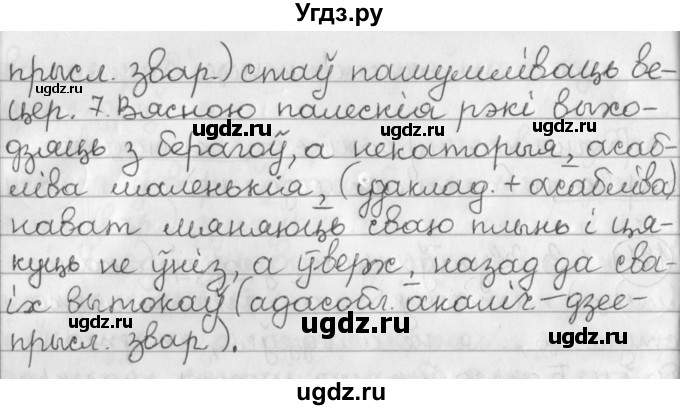 Угдз.ру
прысл. звар.) стаў пашумліваць ве-
цер. 7. Вясною палескія рэкі выхо-
дзяць з берагоў, а некаторыя, асаб-
ліва маленькія, (удаклад. + асабліва)
нават мяняюць сваю плынь і ця-
куць не ўніз, а ўверх, назад да сва-
іх вытокаў (адасобл. акаліч – дзее-
прысл. звар.).
ugdz.ru
ugdz.ru
ugdz.ru
ugdz.ru
ugdz.ru
ugdz.ru
ugdz.ru
ugdz.ru
ugdz.ru
ugdz.ru
ugdz.ru